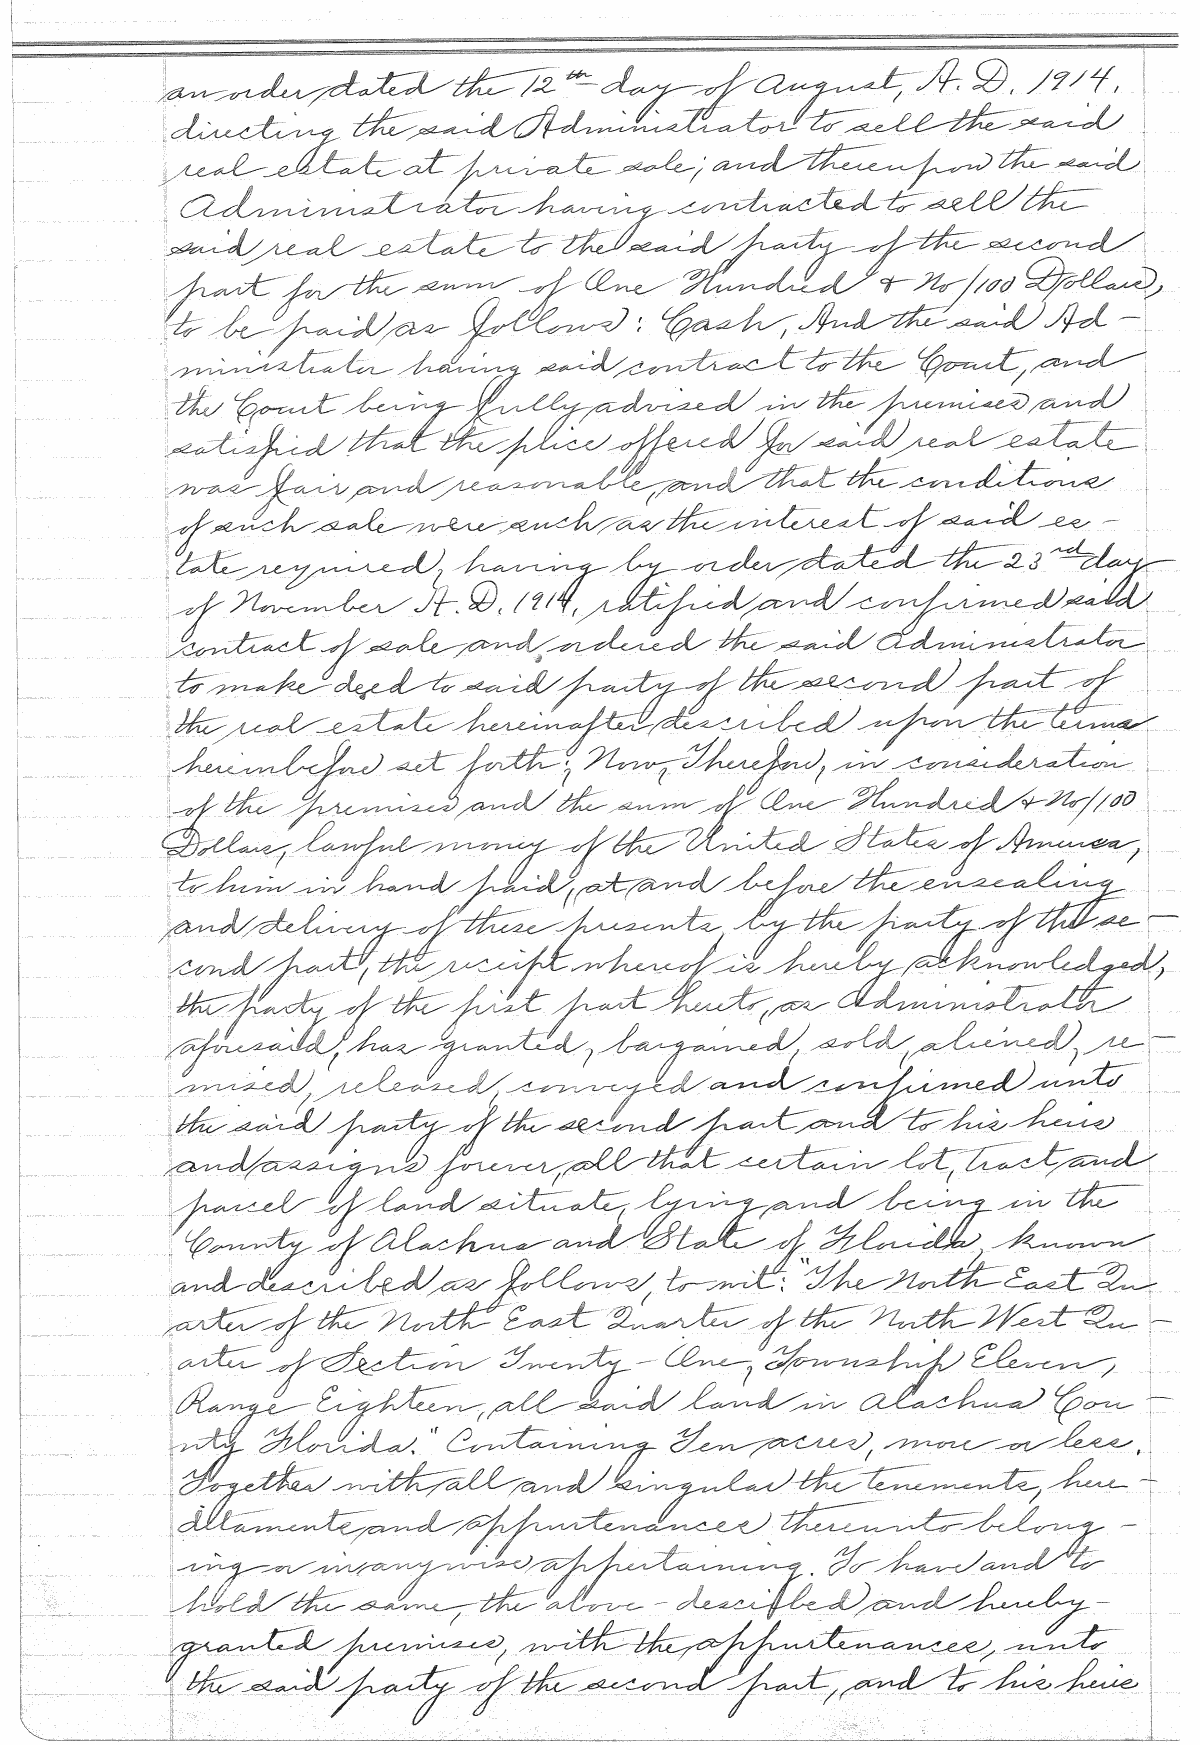 an order, dated the 12th day of August, A. D. 1914,
directing the said Administrator to sell the said
real estate at private sale; and thereupon the said
Administrator having contracted to sell the
said real estate to the said party of the second
part for the sum of One Hundred & No/100 Dollars,
to be paid as follows: Cash, And the said Ad-
ministrator having said contract to the Court, and
the Court being fully advised in the premises and
satisfied that the plice offered for said real estate
was fair and reasonable, and that the conditions
of such sale were such as the interest of said es-
tate required, having by order dated the 23rd day
of November A. D. 1914, ratified and confirmed said
contract of sale and ordered the said Administrator
to make deed to said party of the second part of
the real estate hereinafter described upon the terms
hereinbefore set forth; Now, Therefore, in consideration
of the premises and the sum of One Hundred & No/100
Dollars, lawful money of the United States of America,
to him in hand paid, at and before the ensealing
and delivery of these presents, by the party of the se-
cond part, the receipt whereof is hereby acknowledged,
the party of the first part hereto, as Administrator
aforesaid, has granted, bargained, sold, aliened, re-
mised, released, conveyed and confirmed unto
the said party of the second part and to his heirs
and assigns forever, all that certain lot, tract and
parcel of land situate, lying and being in the
County of Alachua and State of Florida, known
and described as follows, to wit: "The North East Qu
arter of the North East Quarter of the North West Qu-
arter of Section Twenty-One, Township Eleven,
Range Eighteen, all said land in Alachua Cou-
nty Florida." Containing Ten acres, more or less.
Together with all and singular the tenements, here-
ditaments and appurtenances thereunto belong-
ing or in anywise appertaining. To have and to
hold the same, the above-described and hereby-
granted premises, with the appurtenances, unto
the said party of the second part, and to his heirs